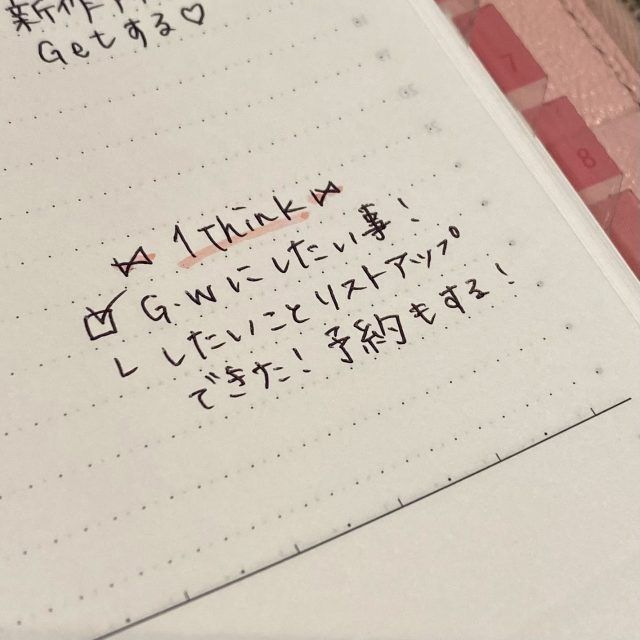 新作
Getする♡
1 Think
G.Wにしたい事！
したいことリストアップ
できた！予約もする！
7
8